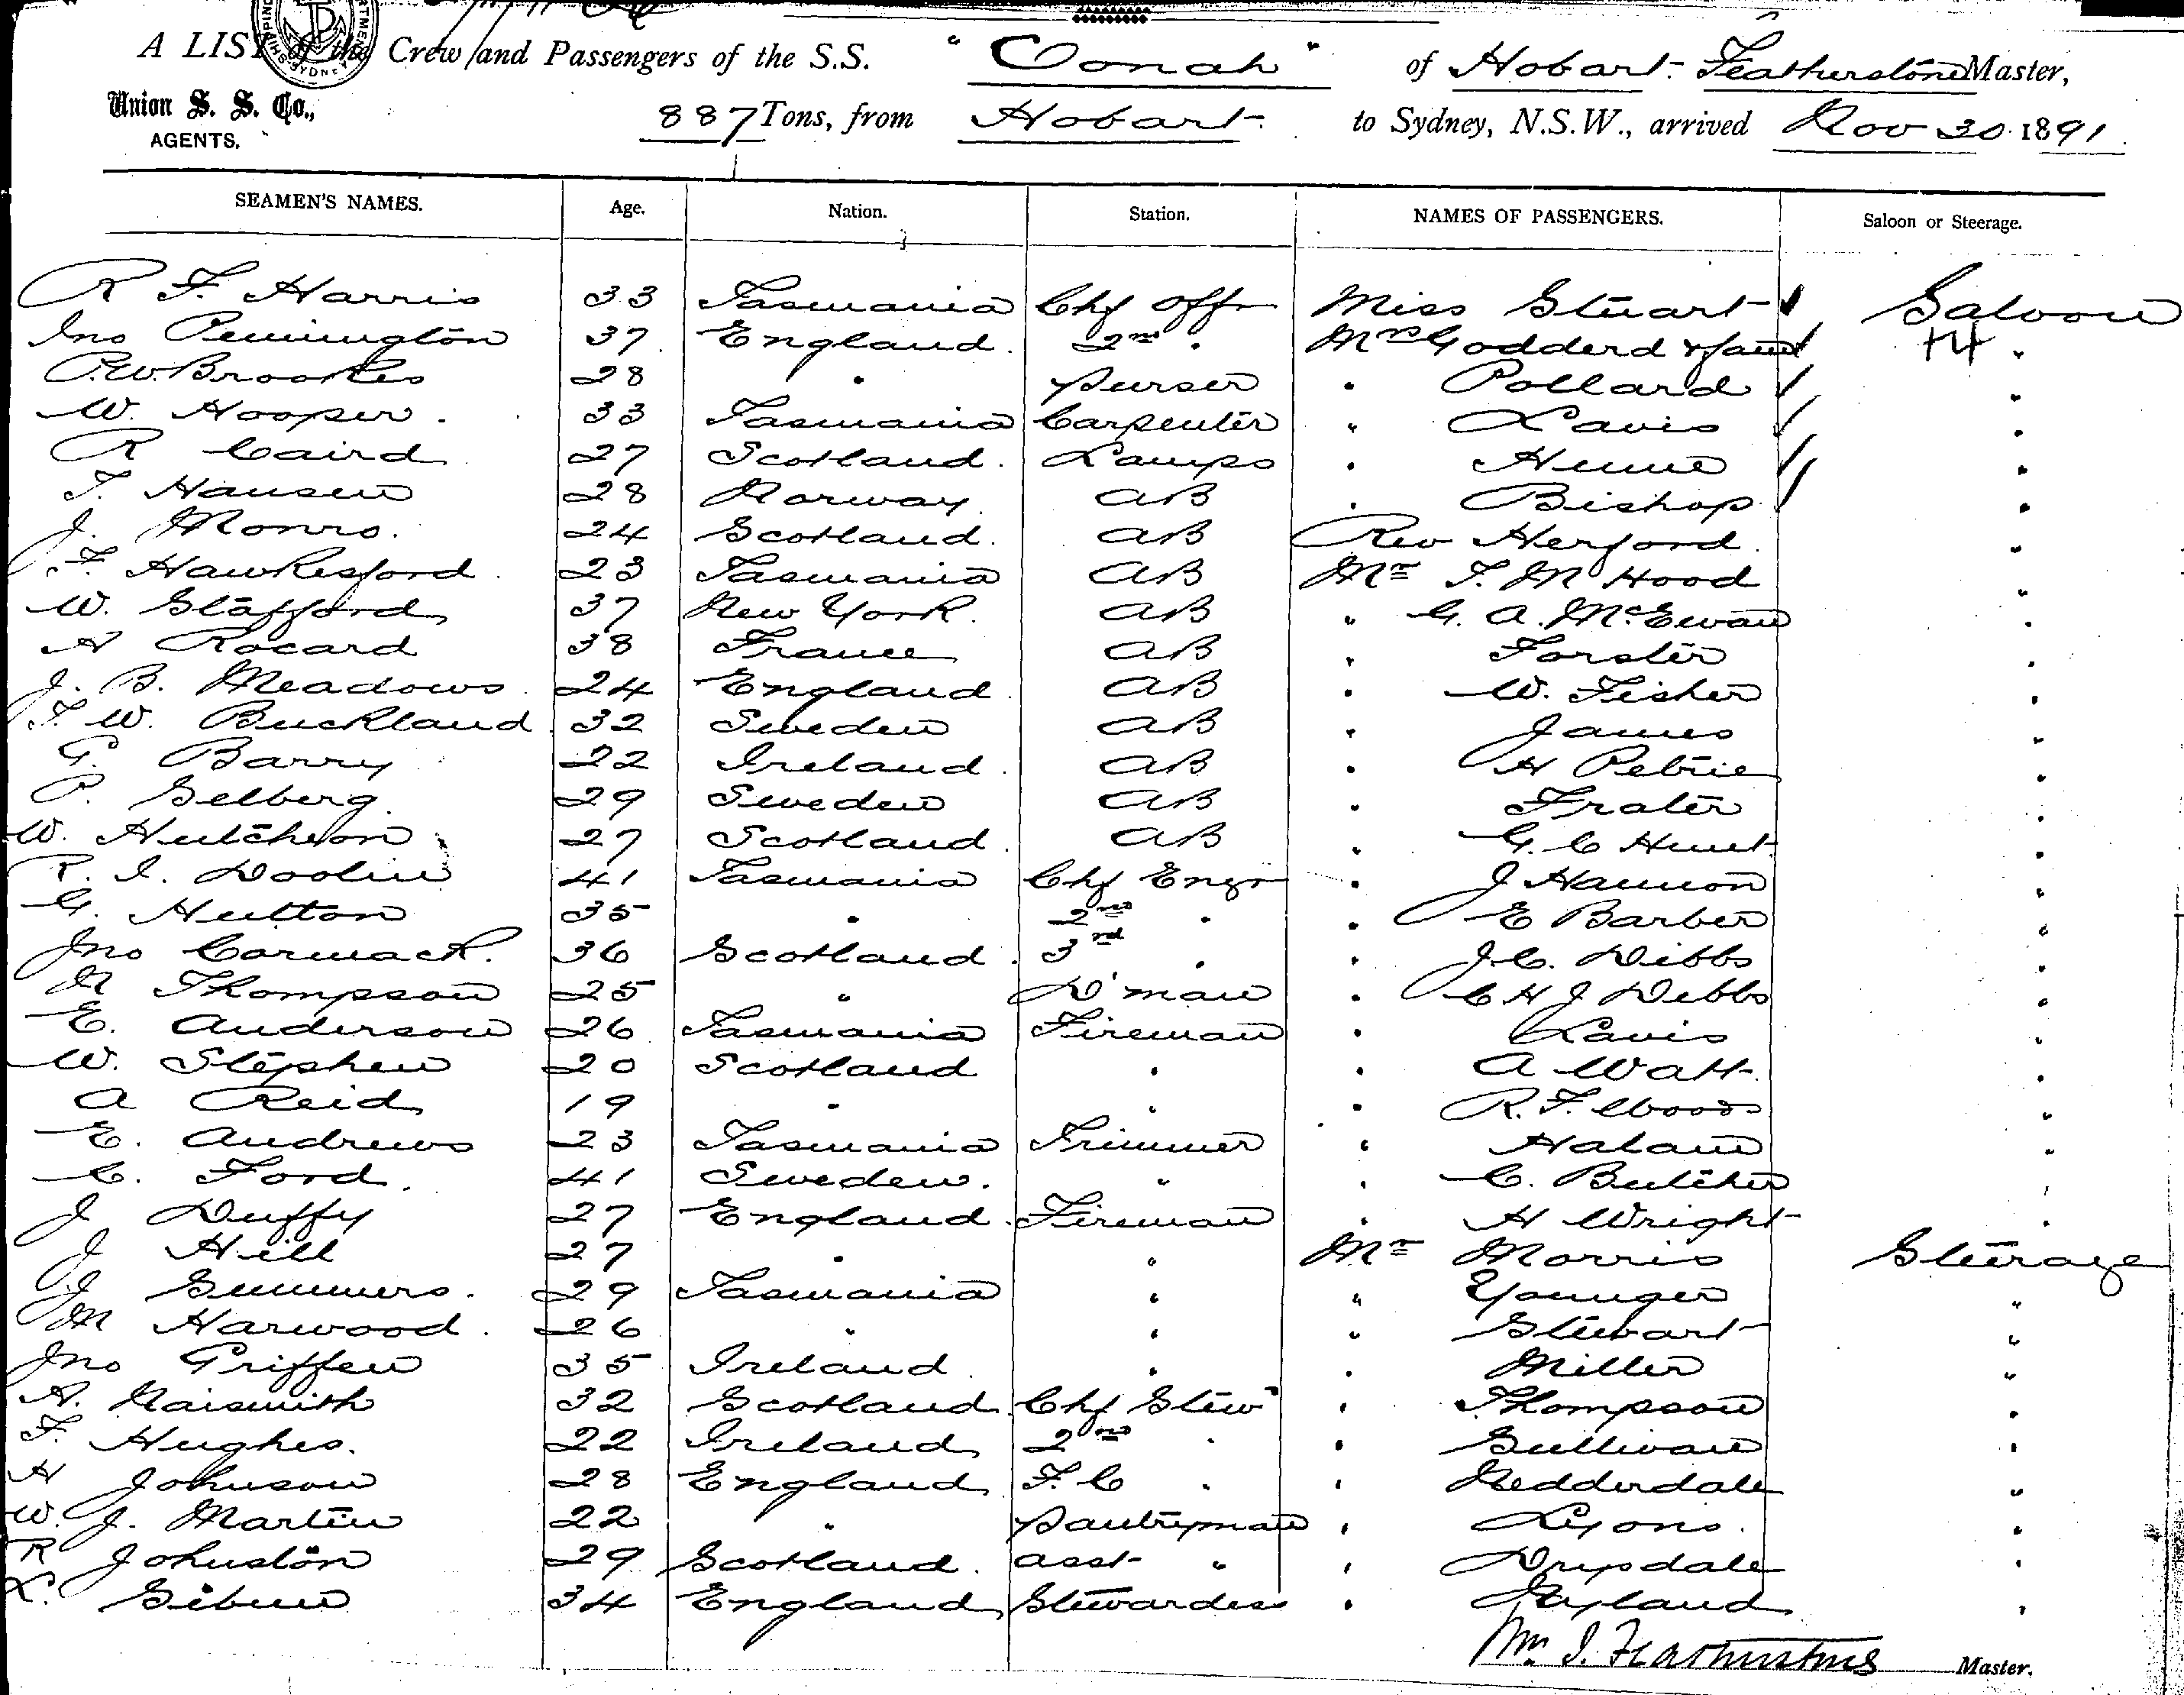 A LIST of the Crew and Passengers of the S.S. "Oonah" of Hobart. Featherstone Master,
Union S. S. Co.,
AGENTS.
887 Tons, from Hobart to Sydney, N.S.W., arrived Nov 30 1891
SEAMEN'S NAMES. Age. Nation. Station. NAMES OF PASSENGERS. Saloon or Steerage.
R F. Harris 33 Tasmania Chf Offr Miss Stuart Saloon
Jno Pennington 37 England 2nd " Mrs Godderd & "
P.W. Brookes 28 " Purser " Pollard "
W. Hooper 33 Tasmania Carpenter " Lavis "
R Caird 27 Scotland Lamps " Hume "
T. Hansen 28 Norway AB " Bishop "
J. Monro. 24 Scotland AB Rev Herford "
F. Hawkesford 23 Tasmania AB Mr T. M Hood "
W. Stafford 37 New York AB " G. A. McEwan "
A Rocard 38 France AB " Forster "
J. B. Meadows 24 England AB " W. Fisher "
T. W. Buckland 32 Sweden AB " James "
G. Barry 22 Ireland AB " H Petrie "
P. Selberg 29 Sweden AB " Frater "
W. Hutcheson 27 Scotland AB " G. C Hunt "
R. I. Doolin 41 Tasmania Chf Engr " J Hannon "
G. Hutton 35 " 2nd " " E Barber "
Jno Cormack. 36 Scotland 3rd " " J. C. Dibbs "
Thompson 25 " D'man " C H J Debbs "
E. Anderson 26 Tasmania Fireman " Lavis "
W. Stephen 20 Scotland " " A Watt "
A Reid 19 " " " R. F. Woods "
E. Andrews 23 Tasmania Trimmer " "
C. Ford. 41 Sweden. " " C. Butcher "
J Duffy 27 England Fireman " H Wright "
J Hill 27 " " Mr Morris Steerage
J Summers. 29 Tasmania " " Younger "
M Harwood 26 " " " Stewart "
Jno Griffen 35 Ireland " " Miller "
A. Naismith 32 Scotland Chf Stew " Thompson "
F. Hughes. 22 Ireland 2nd " " Sullivan "
H Johnson 28 England F. C " " Nedderdale "
W. J. Martin 22 " Pantryman " Lyons "
R Johnston 29 Scotland Asst " " Drysdale "
L. Sibun 34 England Stewardess " Ryland "
Wm. J. Featherstone Master.